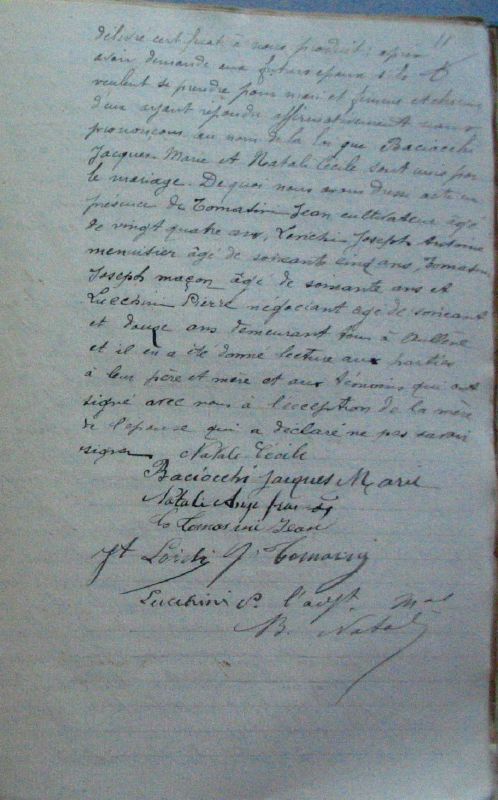 11
délivré certificat à nous produit: après
avoir demandé aux futurs époux s'ils
veulent se prendre pour mari et femme et chacun
d'eux ayant répondu affirmativement nous
prononçons au nom de la loi que Baciocchi
Jacques Marie et Natali Cécile sont unis par
le mariage. De quoi nous avons dressé acte en
présence de Tomasini Jean cultivateur âgé
de vingt quatre ans, Joseph Antoine
menuisier âgé de soixante cinq ans, Tomasini
Joseph maçon âgé de soixante ans et
Lucchini Pierre négociant age de soixante
et douze ans demeurant tous à Aullène
et il en a été donné lecture aux parties
à leur père et mère et aux témoins qui ont
signé avec nous à l'exception de la mère
de l'épouse qui a declaré ne pas savoir
signer Natali Cécile
Baciocchi Jacques Marie
Natali Ange
Tomasini Jean
Lucchini P.
B. Natali